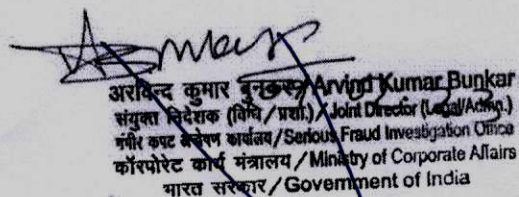 अरविन्द कुमार बुनकर/Arvind Kumar Bunkar
संयुक्त निदेशक (विधि/प्रशा.)/Joint Director (Legal/Admn.)
गंभीर कपट अन्वेषण कार्यालय/Serious Fraud Investigation Office
कॉरपोरेट कार्य मंत्रालय/Ministry of Corporate Affairs
भारत सरकार/Government of India